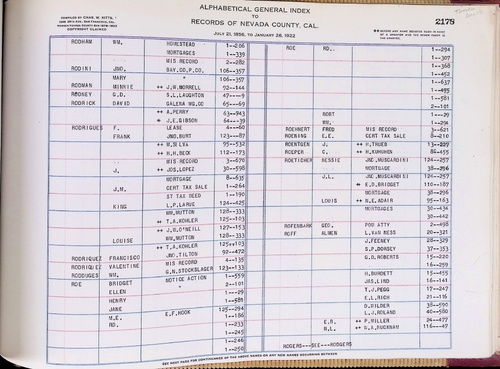 ALPHABETICAL GENERAL INDEX
TO
RECORDS OF NEVADA COUNTY, CAL.
JULY 21, 1856, TO JANUARY 26, 1922
COMPILED BY CHAS. W. KITTS
COPYRIGHT CLAIMED
2178
RODHAM WM. HOMESTEAD 1--206
MORTGAGES 1--339
MIS RECORD 2--282
RODINI JNO. BAY.CO.P.CO. 106--357
MARY " 106--357
RODMAN MINNIE ++ J.W.MORRELL 92--144
RODNEY G.D. S.L.LAUGHTON 47---9
RODRICK DAVID GALENA MG.CO 65--69
++ A.PERRY 63--743
* J.E.GIBSON 64--39
RODRIGUES F. LEASE 4--60
FRANK JNO.HURT 123--87
++ M.SILVA 95--532
++ H.H.BEECK 112--173
MIS RECORD 3--670
J. ++ JOS.LOPEZ 30--598
MORTGAGE 8--635
J.M. CERT TAX SALE 1--264
ST TAX DEED 1--190
KING L.P.LARUE 124--425
WM.MUTTON 128--333
++ T.A.KOHLER 125--103
++ J.W.O'NEILL 127--153
LOUISE WM.MUTTON 128--333
++ T.A.KOHLER 125--103
JNO.TILTON 92--472
RODRIQUEZ FRANCISCO MIS RECORD 4--135
RODRIQUEZ VALENTINE G.N.STOCKSLAGER 123--133
RODUGES WM. NOTICE ACTION 1--559
ROE BRIDGET " 2--101
ELLEN 1--29
HENRY 1--589
JANE E.F.HOOK 125--294
M.E. 1--186
RD. 1--233
1--245
1--246
1--250
ROE RD. 1--294
1--307
1--368
1--452
1--637
1--495
1--581
2--101
ROBT 1--29
WM. 1--294
ROEHNERT FRED MIS RECORD 3--621
ROENING E.E. CERT TAX SALE 8--210
ROENTGEN J ++ H.THUES 13--227
ROEPER C. ++ H.KUHUHON 88--455
ROETICHER BESSIE JNO.MUSCARDINI 124--257
MORTGAGE 38--296
J.L. JNO.MUSCARDINI 124--257
* E.D.BRIDGET 110--187
MORTGAGE 38--296
LOUIS ++ N.E.ADAIR 95--163
MORTGAGES 30--434
30--442
ROFENBARK GEO. POW ATTY 2--498
ROFF ALMEN L.VAN NESS 20--321
J.FEENEY 28--329
S.P.DORSEY 37--353
G.D.ROBERTS 15--220
16--259
H.BURDETT 15--455
JAS.LIND 16--141
T.J.PEGG 17--247
E.L.RICH 21--116
D.WILDER 38--590
L.J.ROLAND 40--580
E.R. ++ P.MILLER 24--477
N.L. ++ G.A.BUCKMAN 116---47
ROGERS---SEE---RODGERS
SEE NEXT PAGE FOR CONTINUANCE OF THE ABOVE NAMES OR ANY NEW NAMES OCCURRING BETWEEN